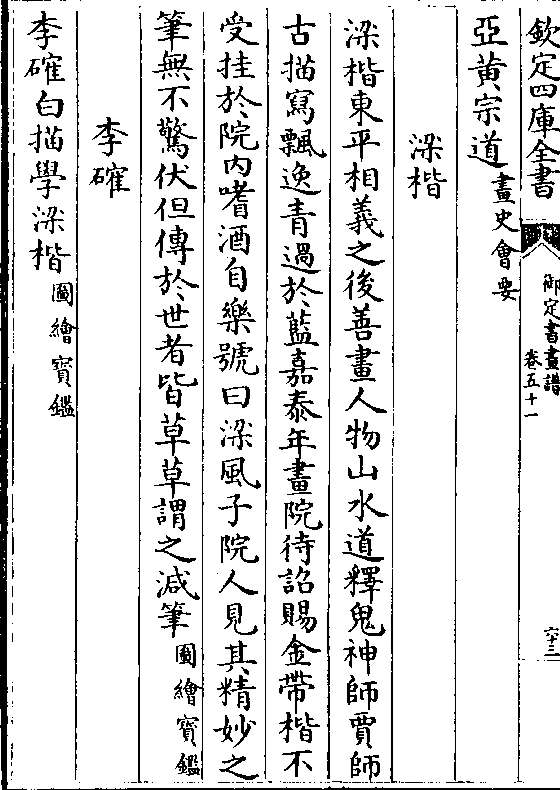 欽定四庫全書
御定書畫譜
卷五十一
六十三
亞黄宗道畫史會要
梁楷
梁楷東平相義之後善畫人物山水道釋鬼神師賈師
古描寫飄逸青過於藍嘉泰年畫院待詔賜金帶楷不
受挂於院内嗜酒自樂號曰梁風子院人見其精妙之
筆無不驚伏但傳於世者皆草草謂之減筆圖繪寳鑑
李確
李確白描學梁楷圖繪寳鑑